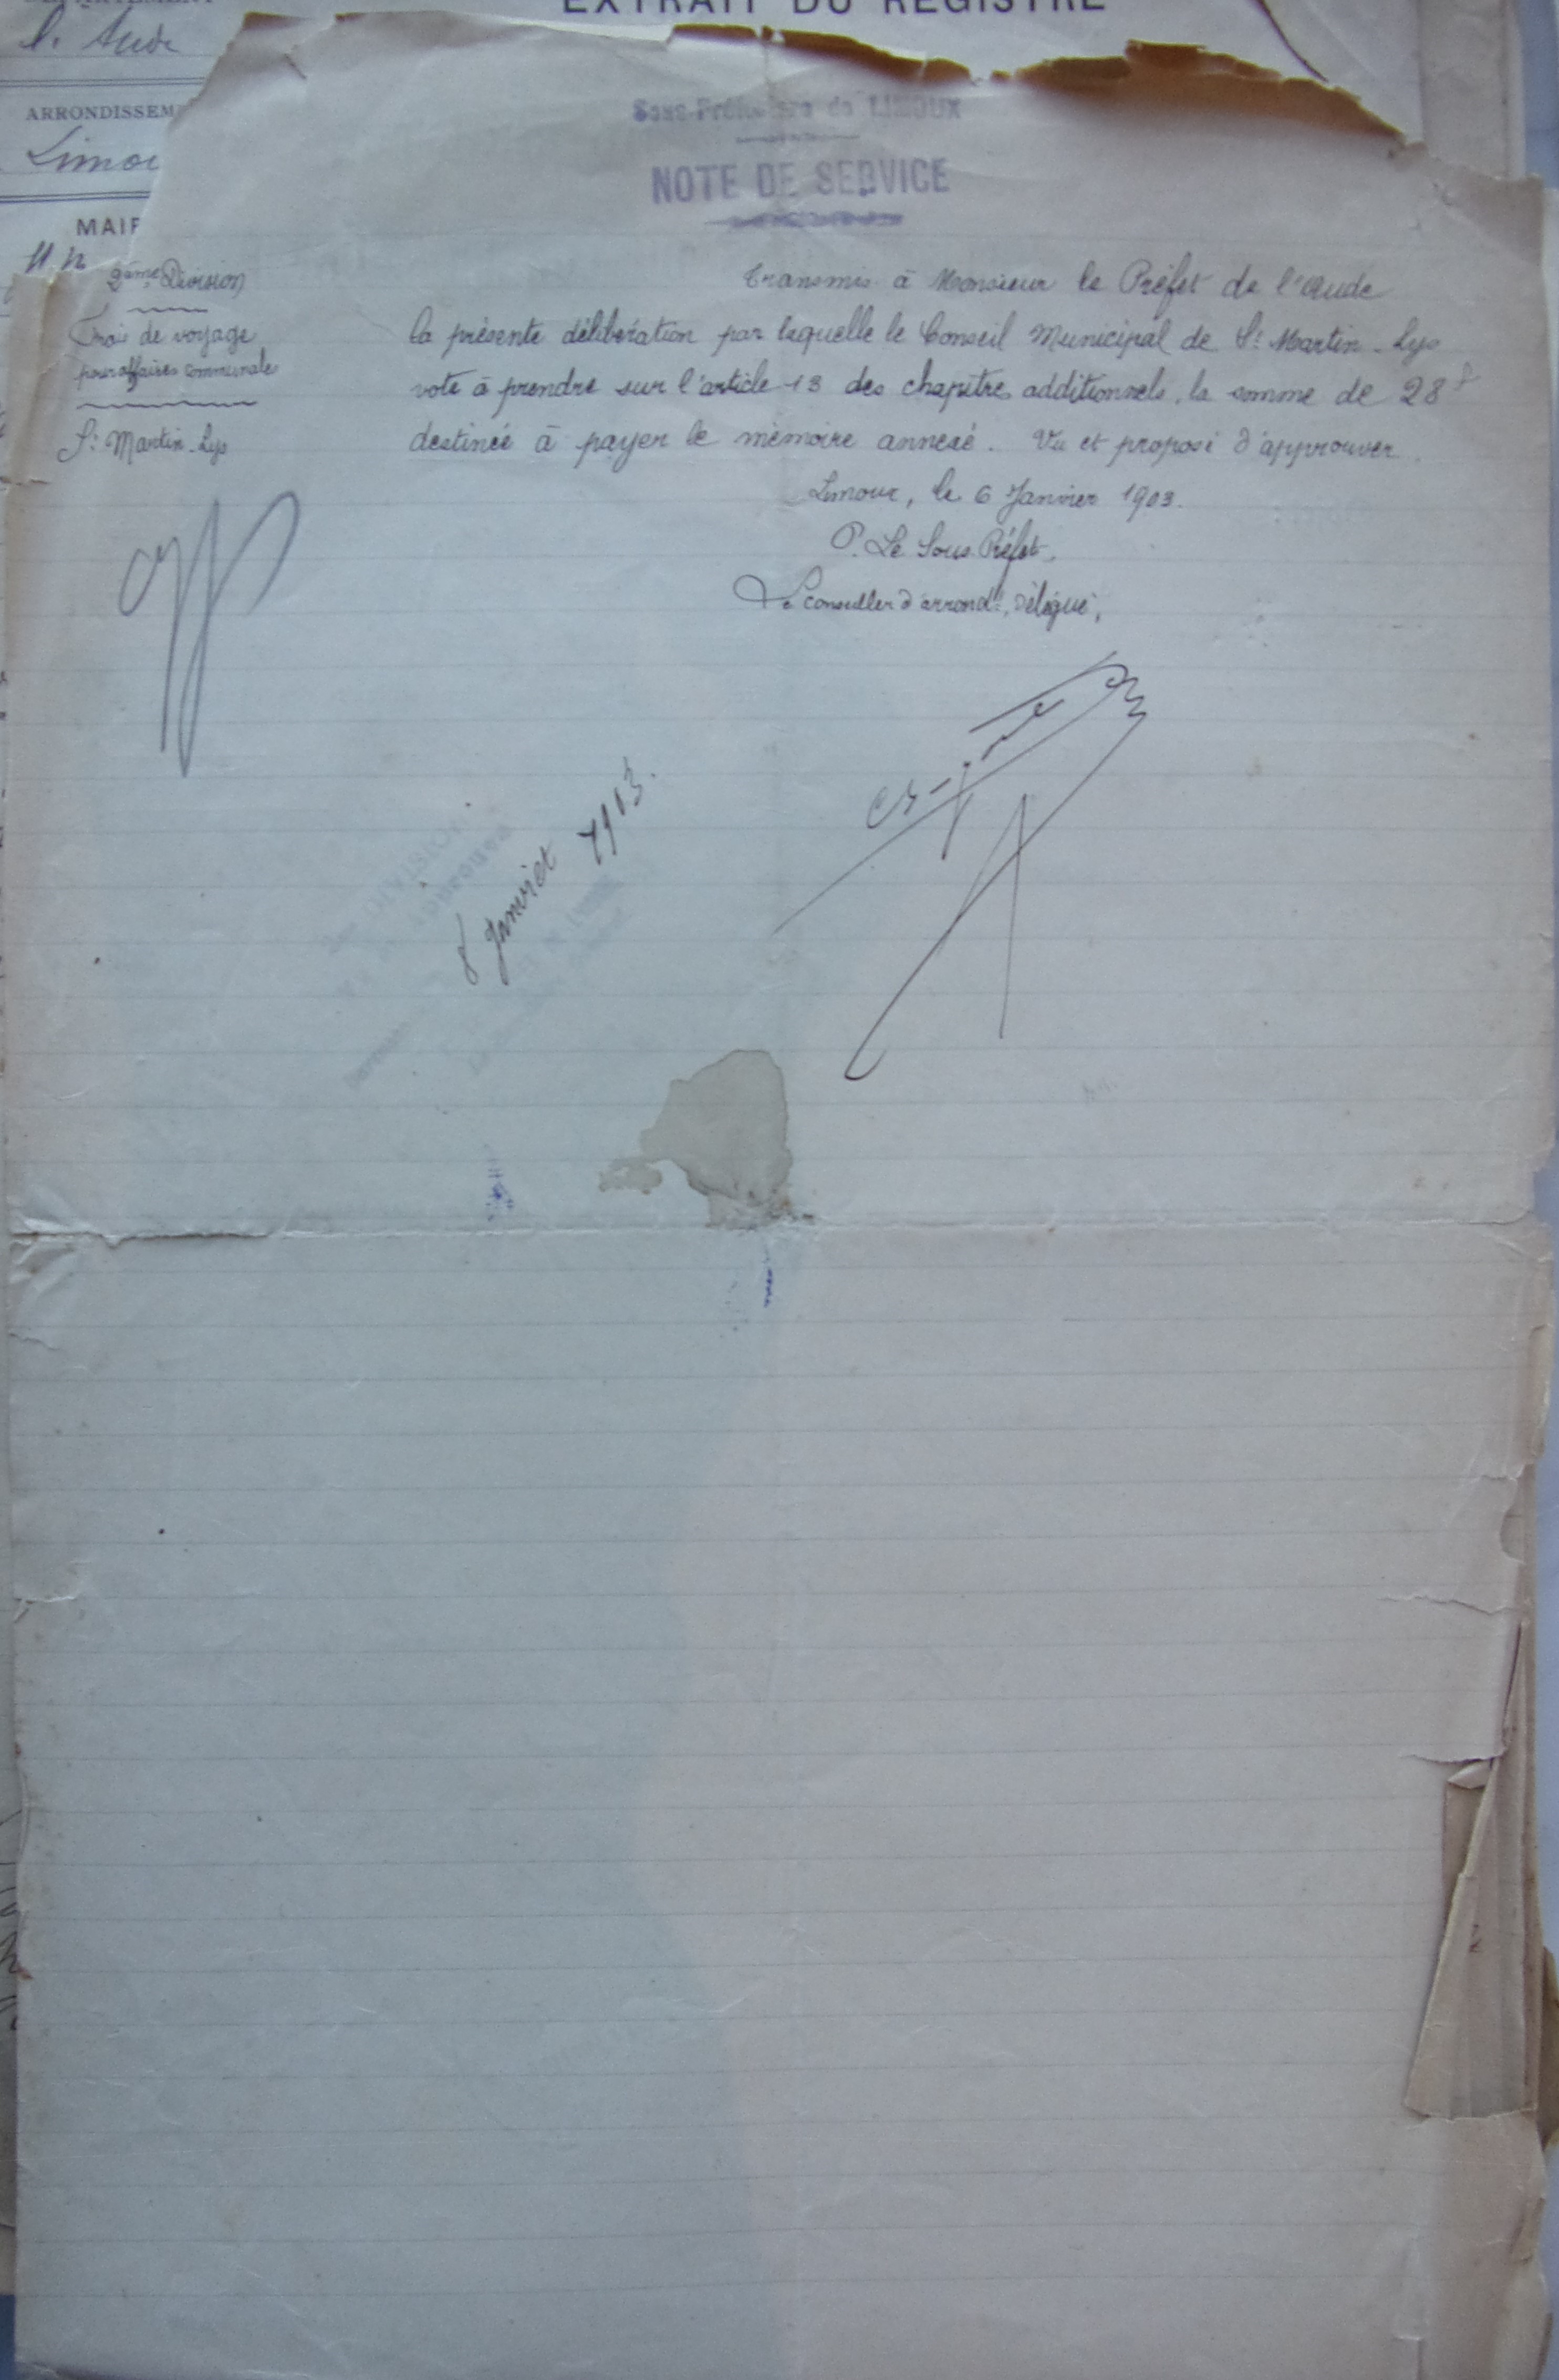 EXTRAIT DU REGISTRE
l'Aude
ARRONDISSEM
Limou
MAIR
Sous-Préfecture de LIMOUX
NOTE DE SERVICE
2ème Division
Frais de voyage
pour affaires communales
St Martin-Lys
Transmis à Monsieur le Préfet de l'Aude
la présente délibération par laquelle le Conseil Municipal de St Martin-Lys
vote à prendre sur l'article 13 des chapitres additionnels, la somme de 28f
destinée à payer le mémoire annexé. Vu et proposé d'approuver.
Limoux, le 6 Janvier 1903.
P. Le Sous-Préfet,
Le Conseiller d'arrondt. Délégué,
8 Janvier 1903.